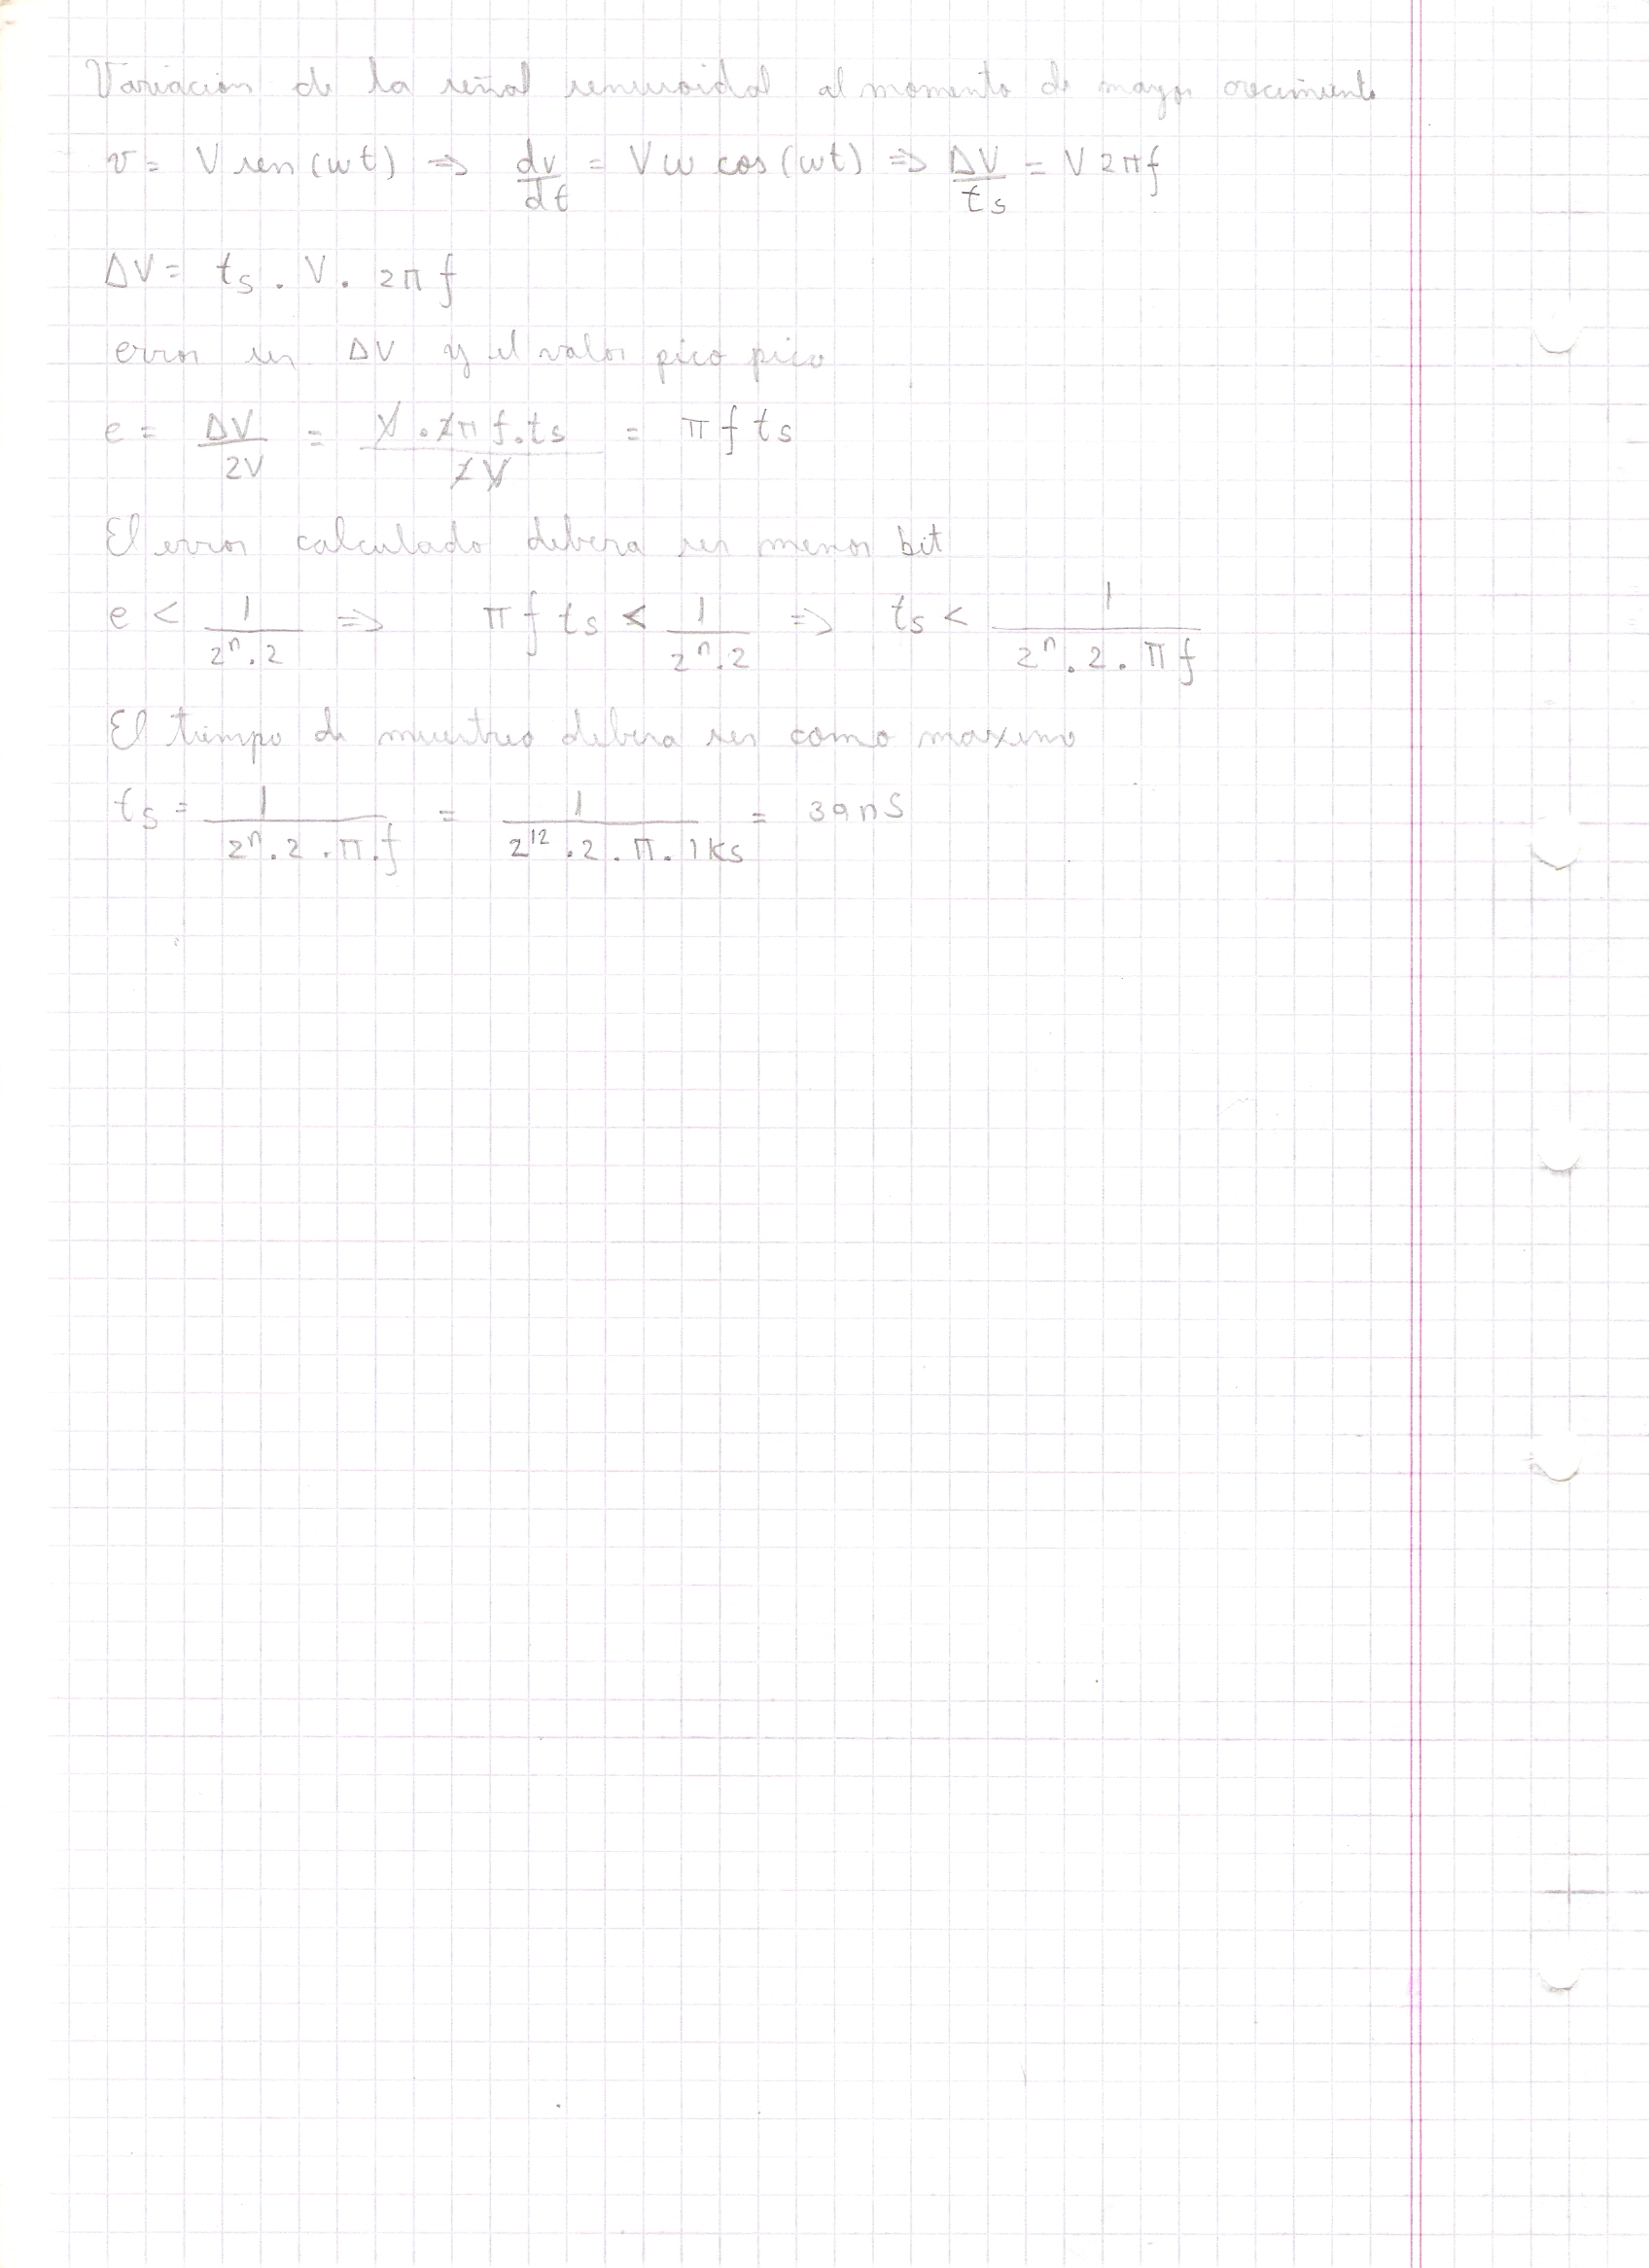 Variación de la señal senusoidal al momento de mayor crecimiento
v = V sen (wt) => dv/dt = V w cos (wt) => ΔV/ts = V 2πf
ΔV = ts . V . 2π f
error en ΔV y el valor pico pico
e = ΔV/2V = V . 2π f . ts / 2V = π f ts
El error calculado debera ser menor bit
e < 1/(2^n . 2) => π f ts < 1/(2^n . 2) => ts < 1/(2^n . 2 . π f)
El tiempo de muestreo debera ser como maximo
ts = 1/(2^n . 2 . π . f) = 1/(2^12 . 2 . π . 1ks) = 39nS